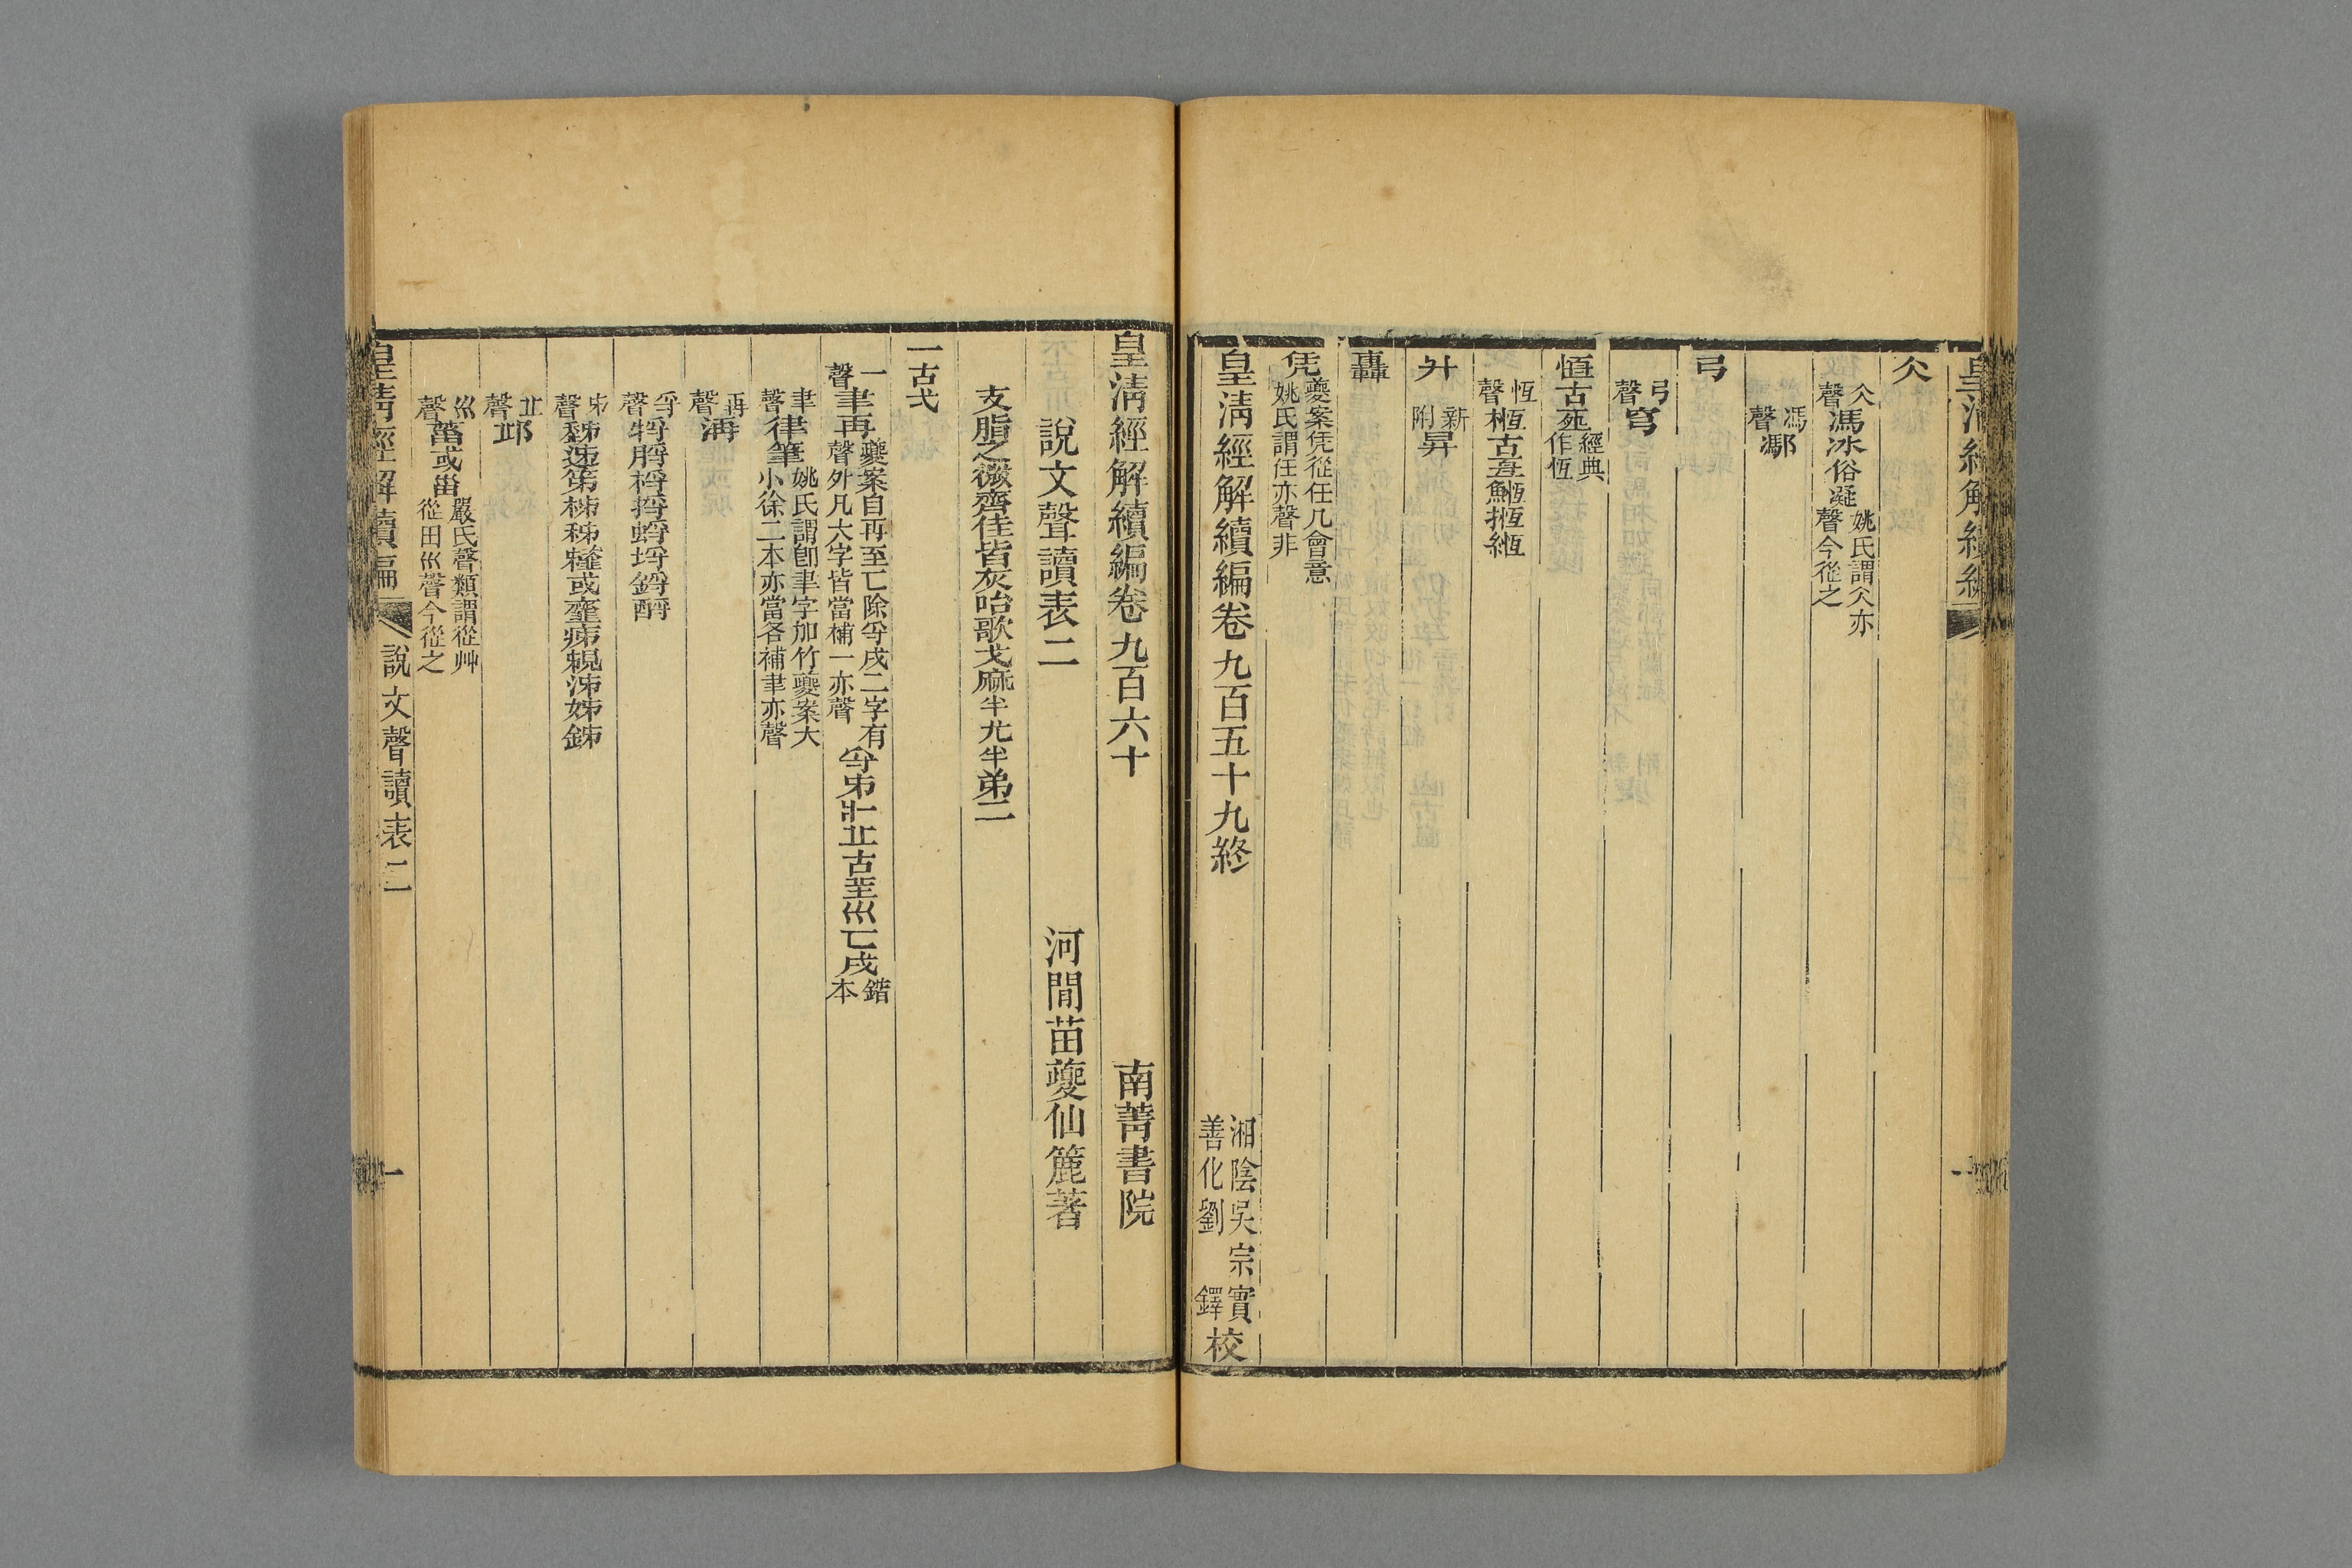 仌
仌聲馮冰俗凝姚氏謂仌亦聲今從之
馮聲䣙
弓
弓聲穹
恆古𠄨經典作恆
恆聲㮓古𠄨䱭搄緪
升
新附昇
轟
凭夔案凭從任几會意姚氏謂任亦聲非
皇淸經解續編卷九百五十九終
湘陰吳宗實
善化劉鐸校
皇淸經解續編卷九百六十
南菁書院
說文聲讀表二
河閒苗夔仙簏著
支脂之微齊佳皆灰咍歌戈麻半尤半弟二
一古弌
一聲聿再夔案自再至匸除寽戌二字有聲外凡大字皆當補一亦聲寽𠂔丬𠀉古坓巛匸戌鍇本
聿聲律筆姚氏謂卽聿字加竹夔案大小徐二本亦當各補聿亦聲
再聲洅
寽聲牸脟桴捋蛶埒鋝酹
𠂔聲𦙼迹第柹秭䊳或𪗋㾊覘泲姊鈽
𠀉聲邱
巛聲葘或甾嚴氏聲類謂從艸從田巛聲今從之
皇淸經解續編
說文聲讀表二
一